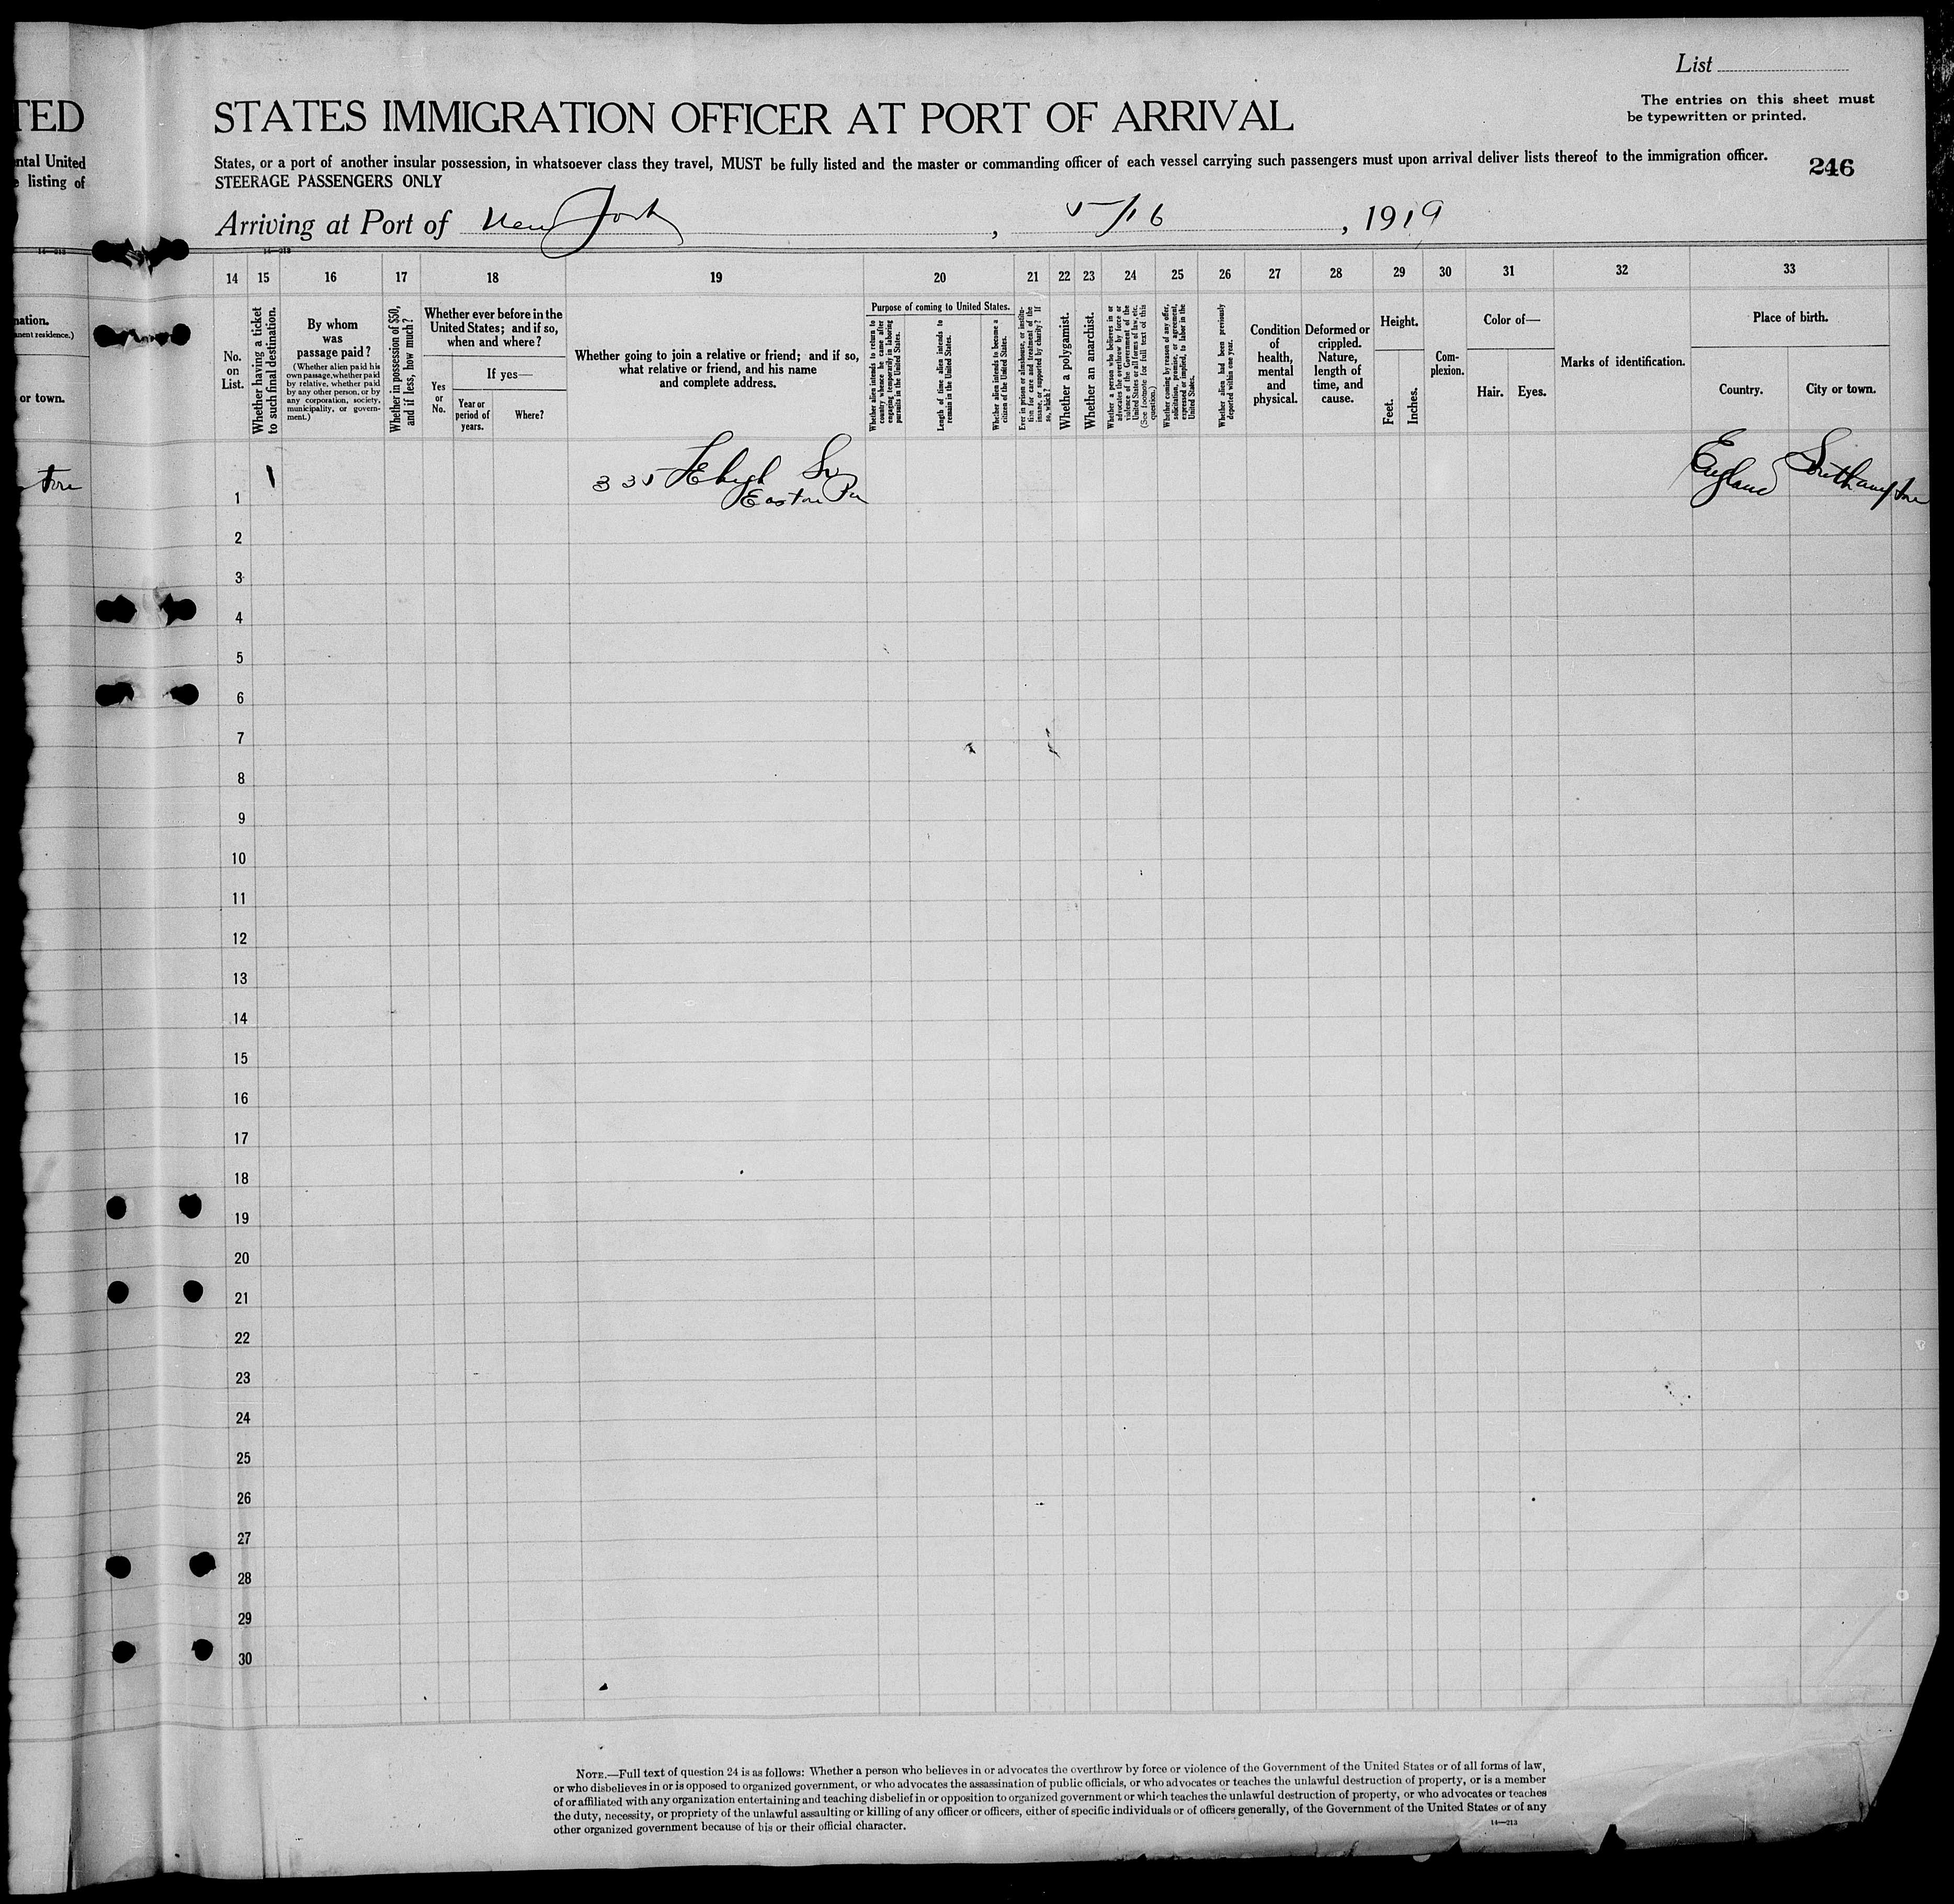 List
The entries on this sheet must
be typewritten or printed.
TED
STATES IMMIGRATION OFFICER AT PORT OF ARRIVAL
ntal United
listing of
States, or a port of another insular possession, in whatsoever class they travel, MUST be fully listed and the master or commanding officer of each vessel carrying such passengers must upon arrival deliver lists thereof to the immigration officer.
STEERAGE PASSENGERS ONLY
246
Arriving at Port of New York, 5/16, 1919
14—213
14—213
14 15 16 17 18 19 20 21 22 23 24 25 26 27 28 29 30 31 32 33
nation.
nent residence.)
or town.
No.
on
List.
Whether having a ticket
to such final destination.
By whom
was
passage paid?
(Whether alien paid his
own passage, whether paid
by relative, whether paid
by any other person, or by
any corporation, society,
municipality, or govern-
ment.)
Whether in possession of $50,
and if less, how much?
Whether ever before in the
United States; and if so,
when and where?
Yes
or
No.
If yes—
Year or
period of
years.
Where?
Whether going to join a relative or friend; and if so,
what relative or friend, and his name
and complete address.
Purpose of coming to United States.
Whether alien intends to return to
country whence he came after
engaging temporarily in laboring
pursuits in the United States.
Length of time alien intends to
remain in the United States.
Whether alien intends to become a
citizen of the United States.
Ever in prison or almshouse, or institu-
tion for care and treatment of the
insane, or supported by charity? If
so, which?
Whether a polygamist.
Whether an anarchist.
Whether a person who believes in or
advocates the overthrow by force or
violence of the Government of the
United States or all forms of law, etc.
(See footnote for full text of this
question.)
Whether coming by reason of any offer,
solicitation, promise, or agreement,
expressed or implied, to labor in the
United States.
Whether alien had been previously
deported within one year.
Condition
of
health,
mental
and
physical.
Deformed or
crippled.
Nature,
length of
time, and
cause.
Height.
Feet.
Inches.
Com-
plexion.
Color of—
Hair. Eyes.
Marks of identification.
Place of birth.
Country.
City or town.
ton
1
335 Lehigh St
Easton Pa
England Southampton
1
2
3
4
5
6
7
8
9
10
11
12
13
14
15
16
17
18
19
20
21
22
23
24
25
26
27
28
29
30
NOTE.—Full text of question 24 is as follows: Whether a person who believes in or advocates the overthrow by force or violence of the Government of the United States or of all forms of law,
or who disbelieves in or is opposed to organized government, or who advocates the assassination of public officials, or who advocates or teaches the unlawful destruction of property, or is a member
of or affiliated with any organization entertaining and teaching disbelief in or opposition to organized government or which teaches the unlawful destruction of property, or who advocates or teaches
the duty, necessity, or propriety of the unlawful assaulting or killing of any officer or officers, either of specific individuals or of officers generally, of the Government of the United States or of any
other organized government because of his or their official character.
14—213